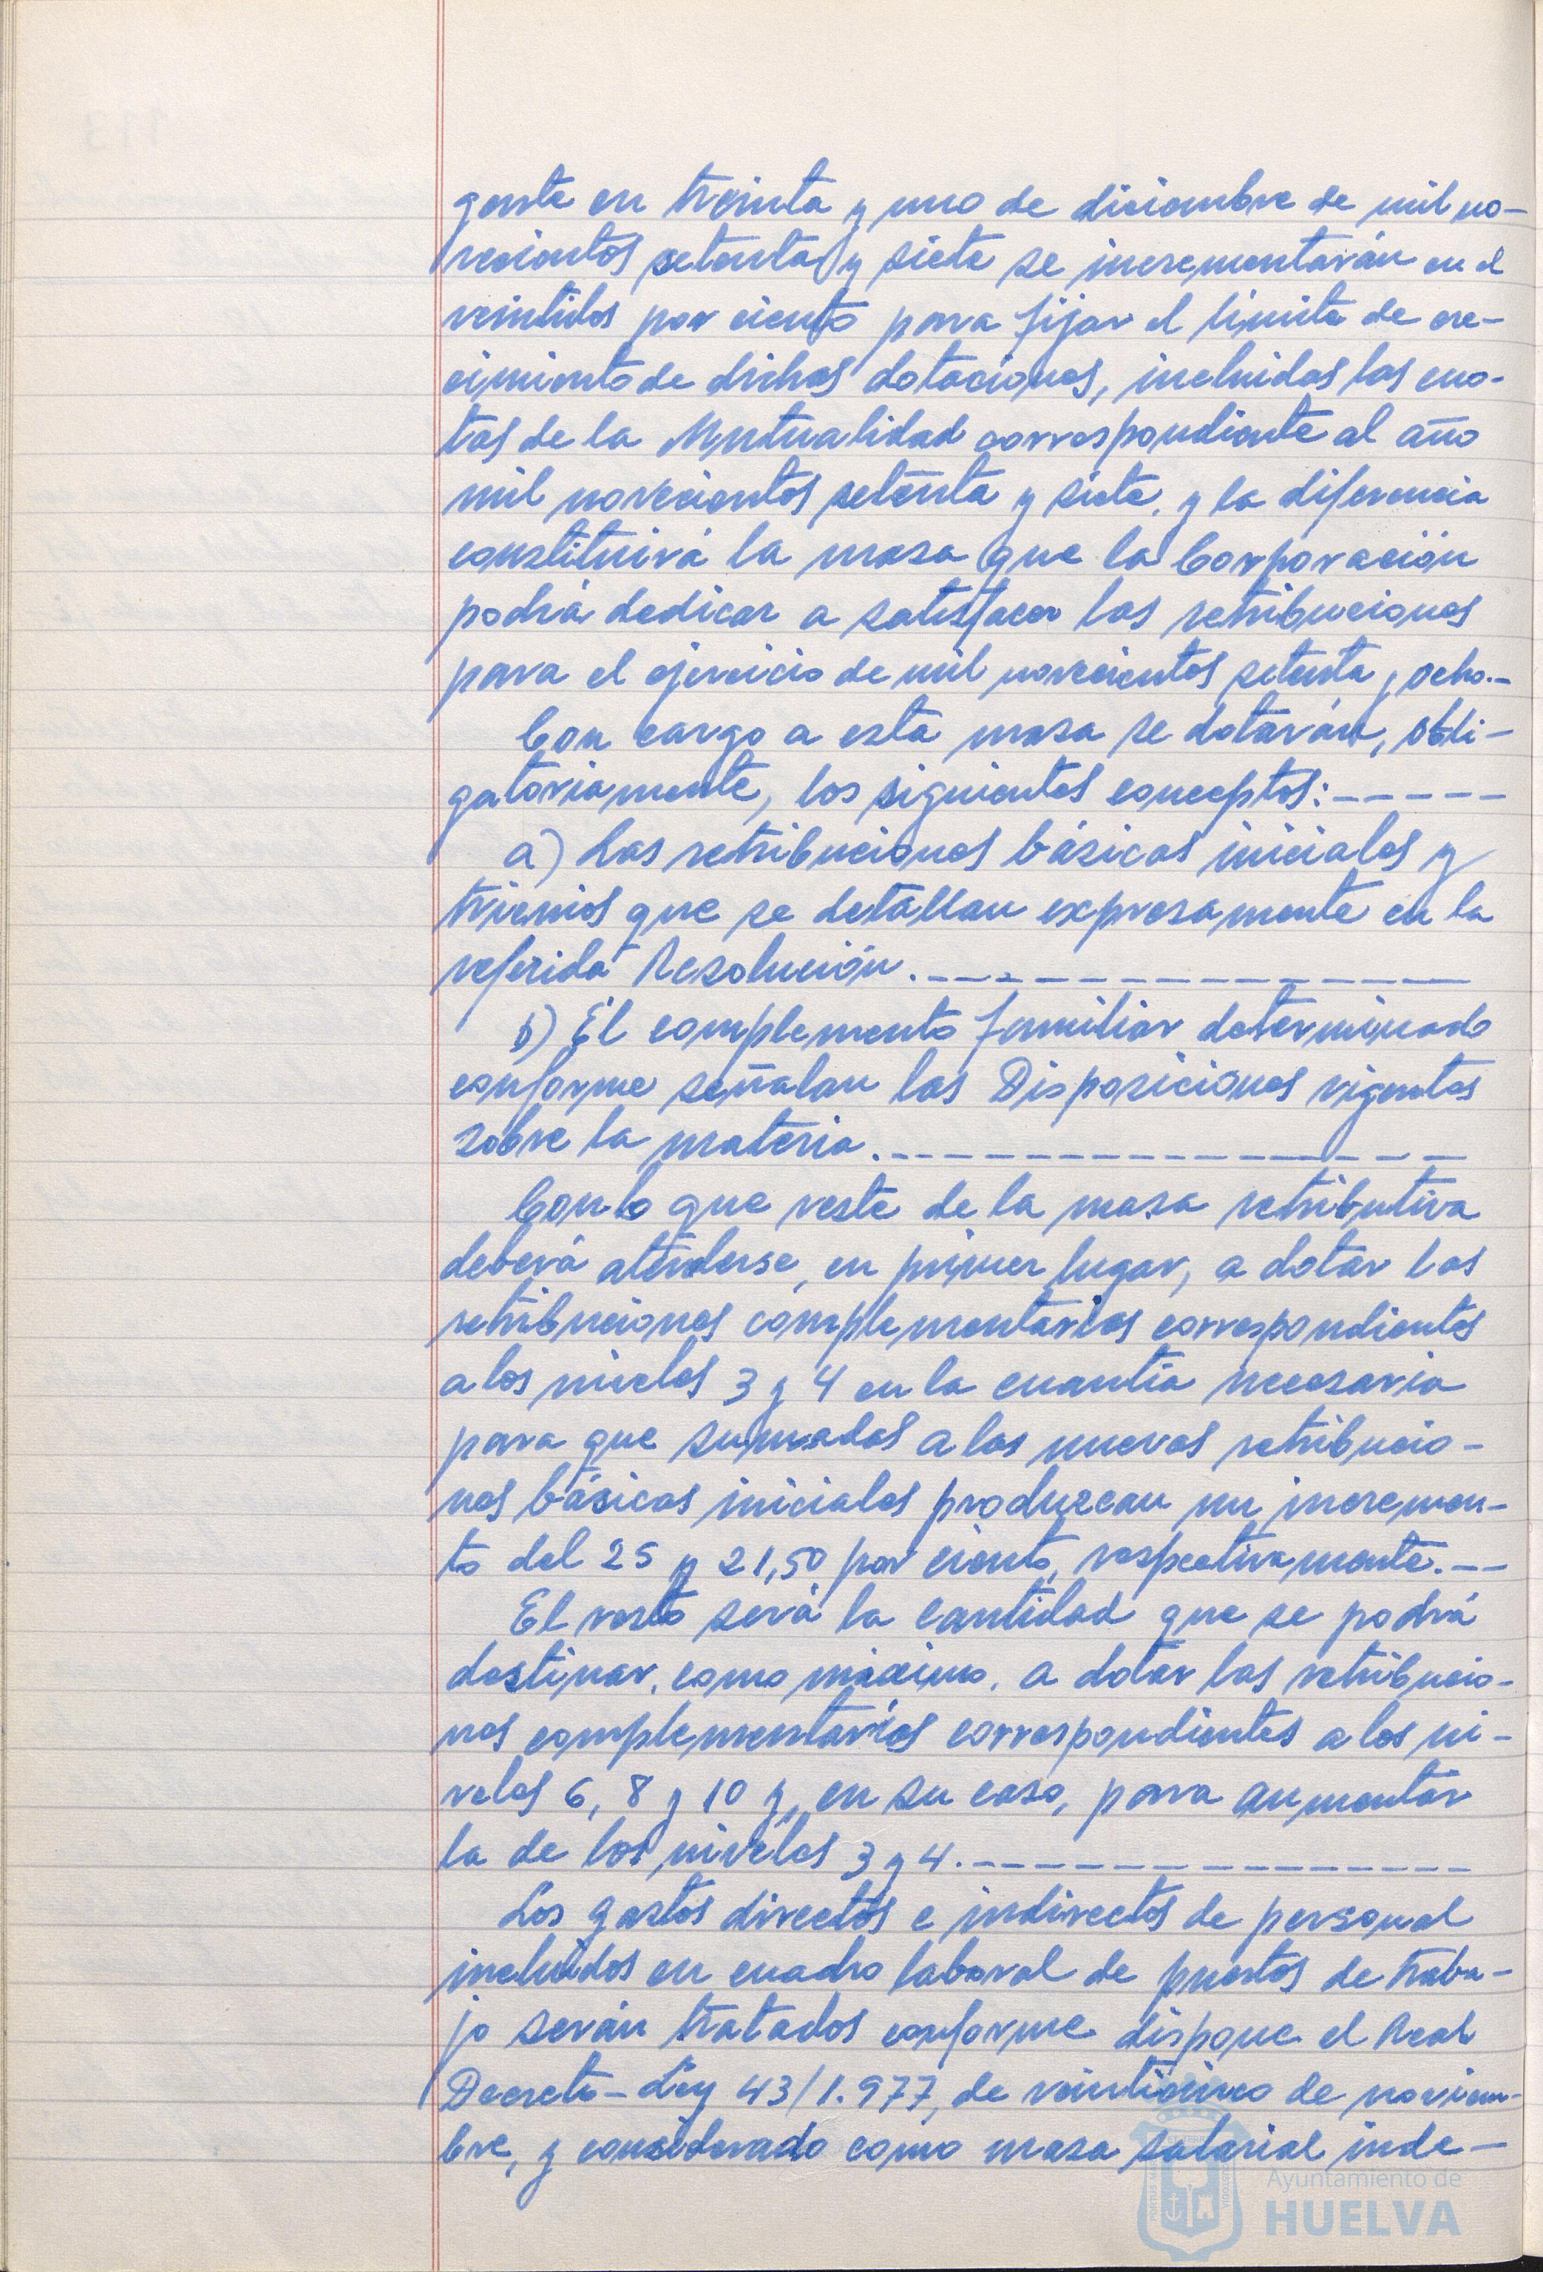 gente en treinta y uno de diciembre de mil no-
vecientos setenta y siete se incrementarán en el
veintidos por ciento para fijar el límite de cre-
cimiento de dichas dotaciones, incluidas las cuo-
tas de la Mutualidad correspondiente al año
mil novecientos setenta y siete, y la diferencia
constituirá la masa que la Corporación
podrá dedicar a satisfacer las retribuciones
para el ejercicio de mil novecientos setenta y ocho.-
Con cargo a esta masa se dotarán, obli-
gatoriamente, los siguientes conceptos:-----
a) Las retribuciones básicas iniciales y
trienios que se detallan expresamente en la
referida Resolución.----------------
b) El complemento familiar determinado
conforme señalan las Disposiciones vigentes
sobre la materia.-----------------
Con lo que reste de la masa retributiva
deberá atenderse, en primer lugar, a dotar las
retribuciones complementarias correspondientes
a los niveles 3 y 4 en la cuantía necesaria
para que sumadas a las nuevas retribucio-
nes básicas iniciales produzcan un incremen-
to del 25 y 21,50 por ciento, respectivamente.--
El resto será la cantidad que se podrá
destinar, como máximo, a dotar las retribucio-
nes complementarias correspondientes a los ni-
veles 6, 8 y 10 y, en su caso, para aumentar
la de los niveles 3 y 4.---------------
Los gastos directos e indirectos de personal
incluidos en cuadro laboral de puestos de traba-
jo serán tratados conforme dispone el Real
Decreto-Ley 43/1.977, de veinticinco de noviem-
bre, y considerado como masa salarial inde-
Ayuntamiento de
HUELVA